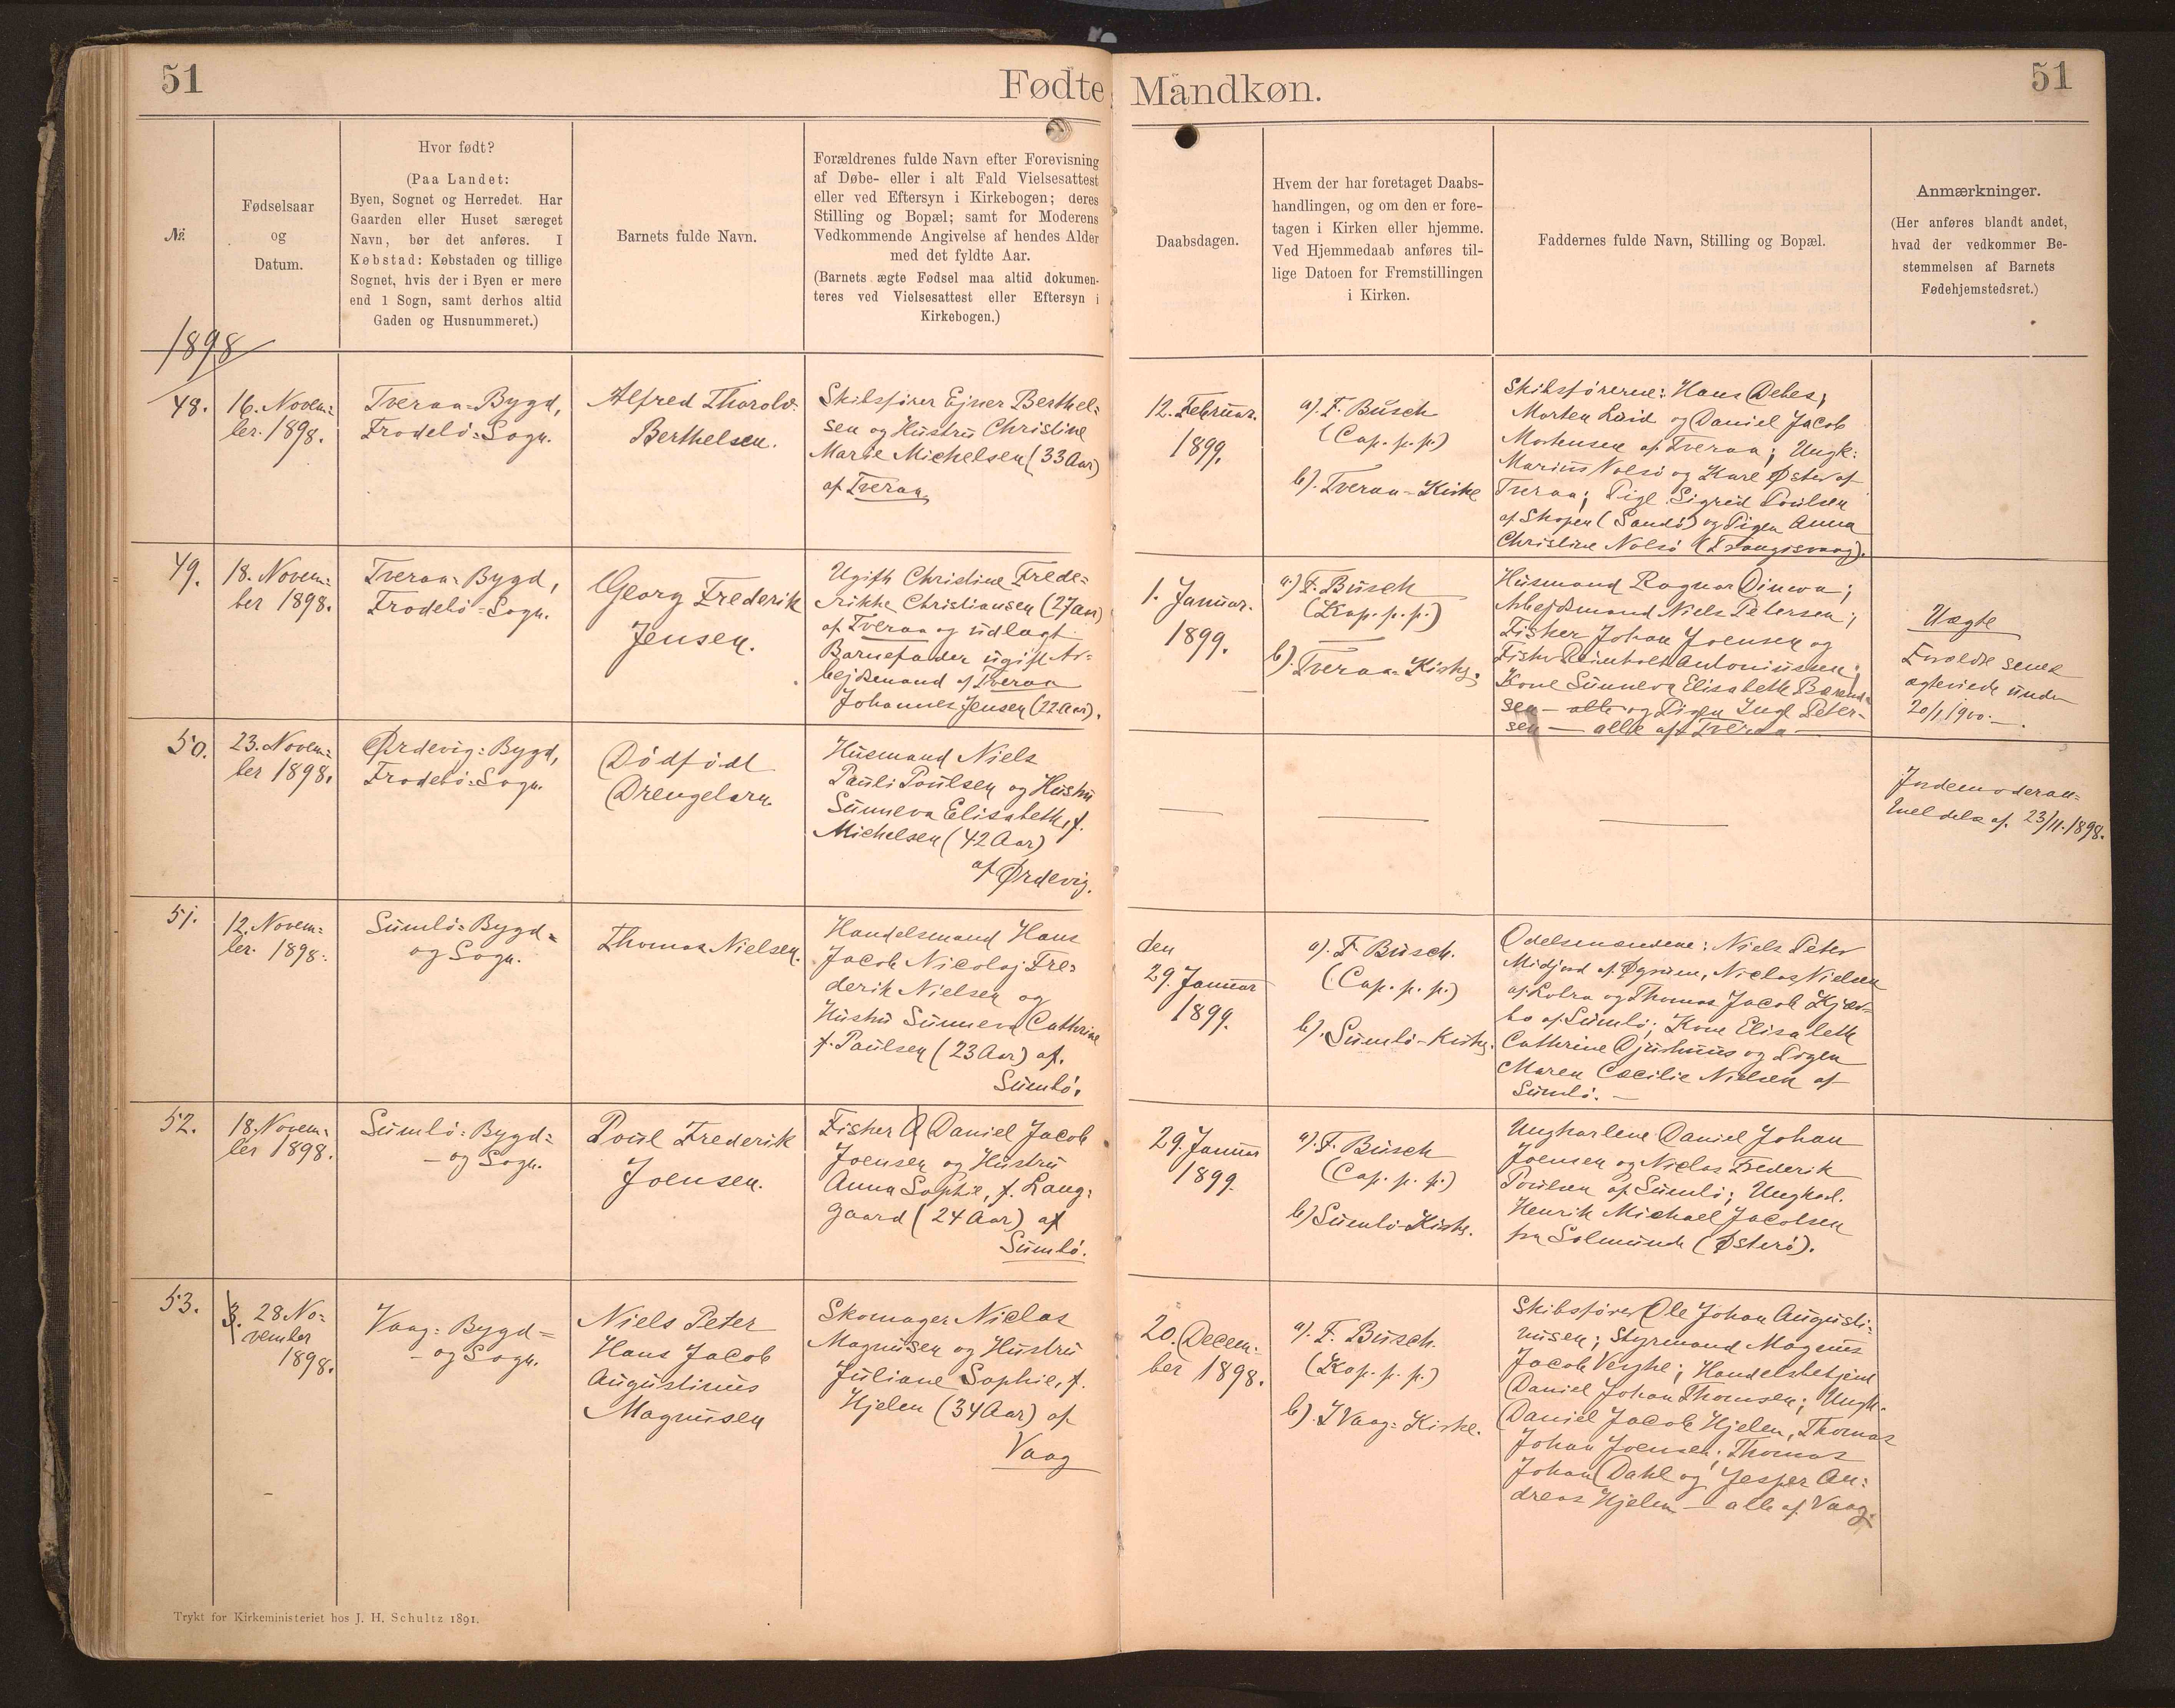 51
Fødte Mandkøn.
51
№.
Fødselsaar
og
Datum.
Hvor født?
(Paa Landet:
Byen, Sognet og Herredet. Har
Gaarden eller Huset særeget
Navn, bør det anføres. I
Købstad: Købstaden og tillige
Sognet, hvis der i Byen er mere
end 1 Sogn, samt derhos altid
Gaden og Husnummeret.)
Barnets fulde Navn.
Forældrenes fulde Navn efter Forevisning
af Døbe- eller i alt Fald Vielsesattest
eller ved Eftersyn i Kirkebogen; deres
Stilling og Bopæl; samt for Moderens
Vedkommende Angivelse af hendes Alder
med det fyldte Aar.
(Barnets ægte Fødsel maa altid dokumen-
teres ved Vielsesattest eller Eftersyn i
Kirkebogen.)
Daabsdagen.
Hvem der har foretaget Daabs-
handlingen, og om den er fore-
tagen i Kirken eller hjemme.
Ved Hjemmedaab anføres til-
lige Datoen for Fremstillingen
i Kirken.
Faddernes fulde Navn, Stilling og Bopæl.
Anmærkninger.
(Her anføres blandt andet,
hvad der vedkommer Be-
stemmelsen af Barnets
Fødehjemstedsret.)
1898
48.
16. Novem=
ber. 1898.
Tveraa=Bygd,
Frodebö=Sogn.
Alfred Thorolv
Berthelsen.
Skibsfører Ejner Berthel=
sen og Hustru Christine
Marie Michelsen (33 Aar)
af Tveraa.
12. Februar.
1899.
a). F. Busch
(Cap. p. p.)
b). Tveraa-Kirke
Skibsførerne: Hans Debes;
Morten Luid og Daniel Jacob
Mortensen af Tveraa; Ungk:
Marius Nolsö og Karl Øster af
Tveraa; Pige Sigrid Poulsen
af Skopen (Sandö) og Pigen Anna
Christine Nolsö (Trangisvaag).
49.
18. Novem=
ber 1898.
Tveraa=Bygd,
Frodebö=Sogn.
Georg Frederik
Jensen.
Ugift Christine Frede=
rikke Christiansen (27 Aar)
af Tveraa og udlagt
Barnefader ugift Ar=
bejdsmand af Tveraa
Johannes Jensen (22 Aar).
1. Januar.
1899.
a.) F. Busch
(Kap. p. p.)
b). Tveraa=Kirke.
Husmand Ragnar Dimon;
Arbejdsmand Niels Petersen;
Fisker Johan Joensen og
Fisker Reinholt Antoniussen;
Kone Sunneva Elisabeth
sen — alle og Pigen Inge Peter-
sen — alle af Tveraa —
Uægte
Forældre senere
ægteviede under
20/1 1900.—
50.
23. Novem=
ber 1898.
Ørdevig=Bygd,
Frodebö=Sogn.
Dödfödt
Drengebarn.
Husmand Niels
Pauli Poulsen og Hustru
Sunneva Elisabeth, f.
Michelsen (42 Aar)
af Ørdevig.
Jordemoderan=
meldelse af. 23/11. 1898.
51.
12. Novem=
ber. 1898.
Sumbö=Bygd=
og Sogn.
Thomas Nielsen.
Handelsmand Hans
Jacob Nicolaj Fre=
derik Nielsen og
Hustru Sunneva Cathrine
f. Paulsen (23 Aar) af.
Sumbö.
den
29. Januar
1899.
a). F. Busch.
(Cap. p. p.)
b). Sumbö-Kirke.
Odelsmændene: Niels Peter
Midjord af Øgnum, Niclas Nielsen
af Lobra og Thomas Jacob Kjær-
bo af Sumbö; Kone Elisabeth
Cathrine Djurhuus og Pigen
Maren Cæcilie Nielsen af
Sumbö. —
52.
18. Novem=
ber 1898.
Sumbö=Bygd=
— og Sogn.
Poul Frederik
Joensen.
Fisker Daniel Jacob
Joensen og Hustru
Anna Sophie, f. Lang=
gaard (24 Aar) af
Sumbö.
29. Januar
1899.
a). F. Busch
(Cap. p. p.)
b) Sumbö-Kirke.
Ungkarlene Daniel Johan
Joensen og Niclas Frederik
Poulsen af Sumbö; Ungkarl.
Henrik Michael Jacobsen
fra Solmunde (Østerö).
53.
28. No=
vember
1898.
Vaag=Bygd=
— og Sogn.
Niels Peter
Hans Jacob
Augustinus
Magnusen
Skomager Niclas
Magnusen og Hustru
Juliane Sophie, f.
Hjelm (34 Aar) af
Vaag
20. Decem=
ber 1898.
a). F. Busch.
(Kap. p. p.)
b). I Vaag=Kirke.
Skibsfører Ole Johan Augusti=
nusen; Styrmand Magnus
Jacob Vesthe; Handelsbetjent
Daniel Johan Thomsen; Ungk.
Daniel Jacob Hjelm, Thomas
Johan Joensen; Thomas
Johan Dahl og Jesper An=
dreas Hjelm — alle af Vaag.
Trykt for Kirkeministeriet hos J. H. Schultz 1891.